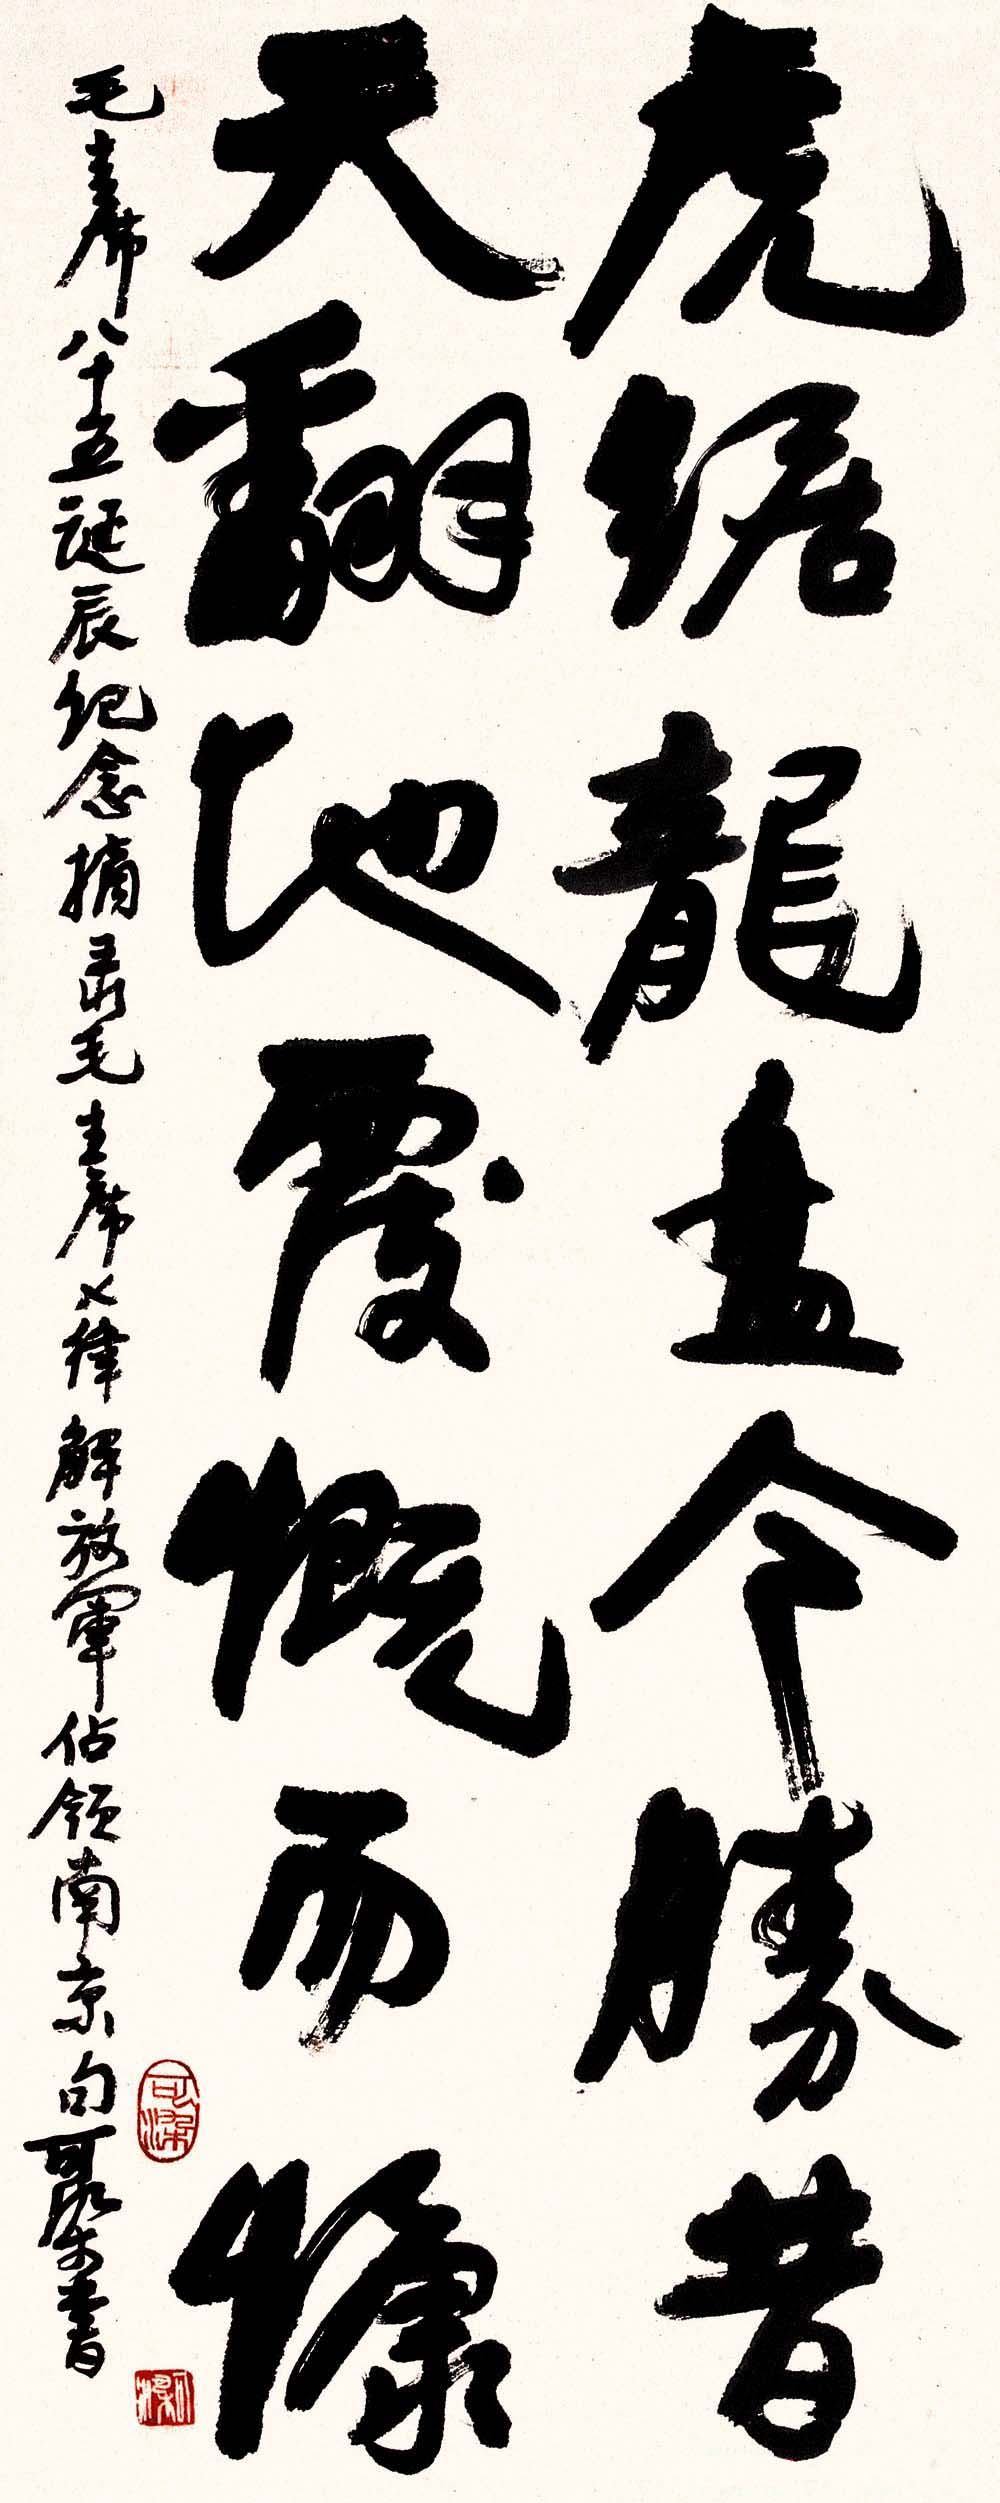 虎踞龍盘今勝昔
天翻地覆慨而慷
毛主席八十五诞辰纪念摘录毛主席七律解放軍佔领南京句可染書
可染